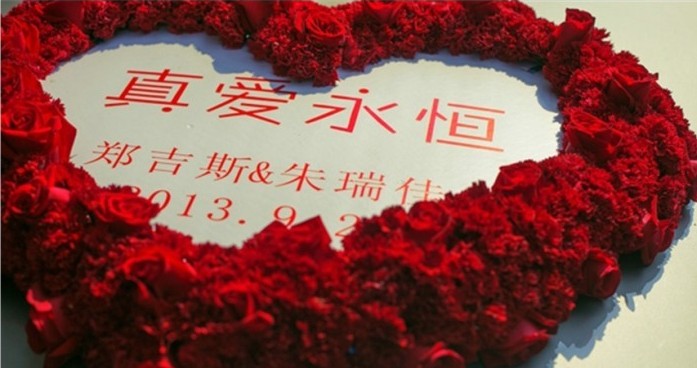 真爱永恒
郑吉斯&朱瑞佳
2013.9.2